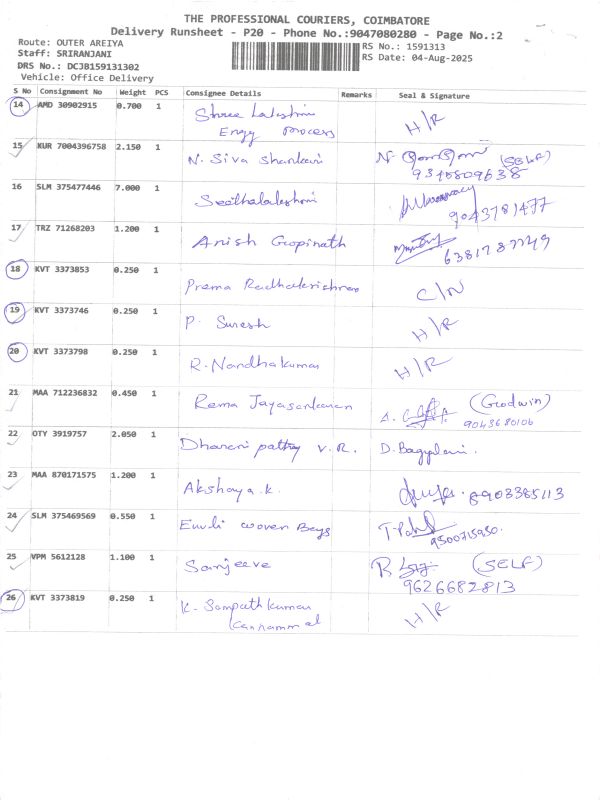 THE PROFESSIONAL COURIERS, COIMBATORE
Delivery Runsheet - P20 - Phone No.:9047080280 - Page No.:2
Route: OUTER AREIYA
RS No.: 1591313
Staff: SRIRANJANI
RS Date: 04-Aug-2025
DRS No.: DCJB159131302
Vehicle: Office Delivery
S No Consignment No Weight PCS Consignee Details Remarks Seal & Signature
14 AMD 30902915 0.700 1 Shree Lakshmi H/R
Engg process
15 KUR 7004396758 2.150 1 N. Siva Shankari N. (SELF)
9340809638
16 SLM 375477446 7.000 1 Seethalakshmi
9043781477
17 TRZ 71268203 1.200 1 Anish Gopinath
6381787749
18 KVT 3373853 0.250 1 Prema Radhakrishnan C/N
19 KVT 3373746 0.250 1 P. Suresh H/R
20 KVT 3373798 0.250 1 R. Nandhakumar H/R
21 MAA 712236832 0.450 1 Rema Jayasankaran (Godwin)
9043680106
22 OTY 3919757 2.050 1 Dharani pathy V.R. D.
23 MAA 870171575 1.200 1 Akshaya.K. 8903385113
24 SLM 375469569 0.550 1 woven Bags
9500715950.
25 VPM 5612128 1.100 1 Sanjeeve R (SELF)
9626682813
26 KVT 3373819 0.250 1 K. Sampathkumar H/R
Kannammal